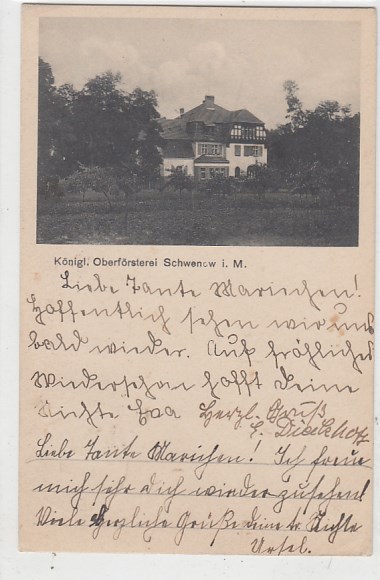 Königl. Oberförsterei Schwenow i. M.
Liebe Tante Mariechen!
Hoffentlich sehen wir uns
bald wieder. Auf fröhliches
Wiedersehen hofft Deine
Nichte Eva Herzl. Gruß
E.
Liebe Tante Mariechen! Ich freue
mich sehr Dich wieder zusehen!
Viele Herzliche Grüße Deine Nichte
Ursel.